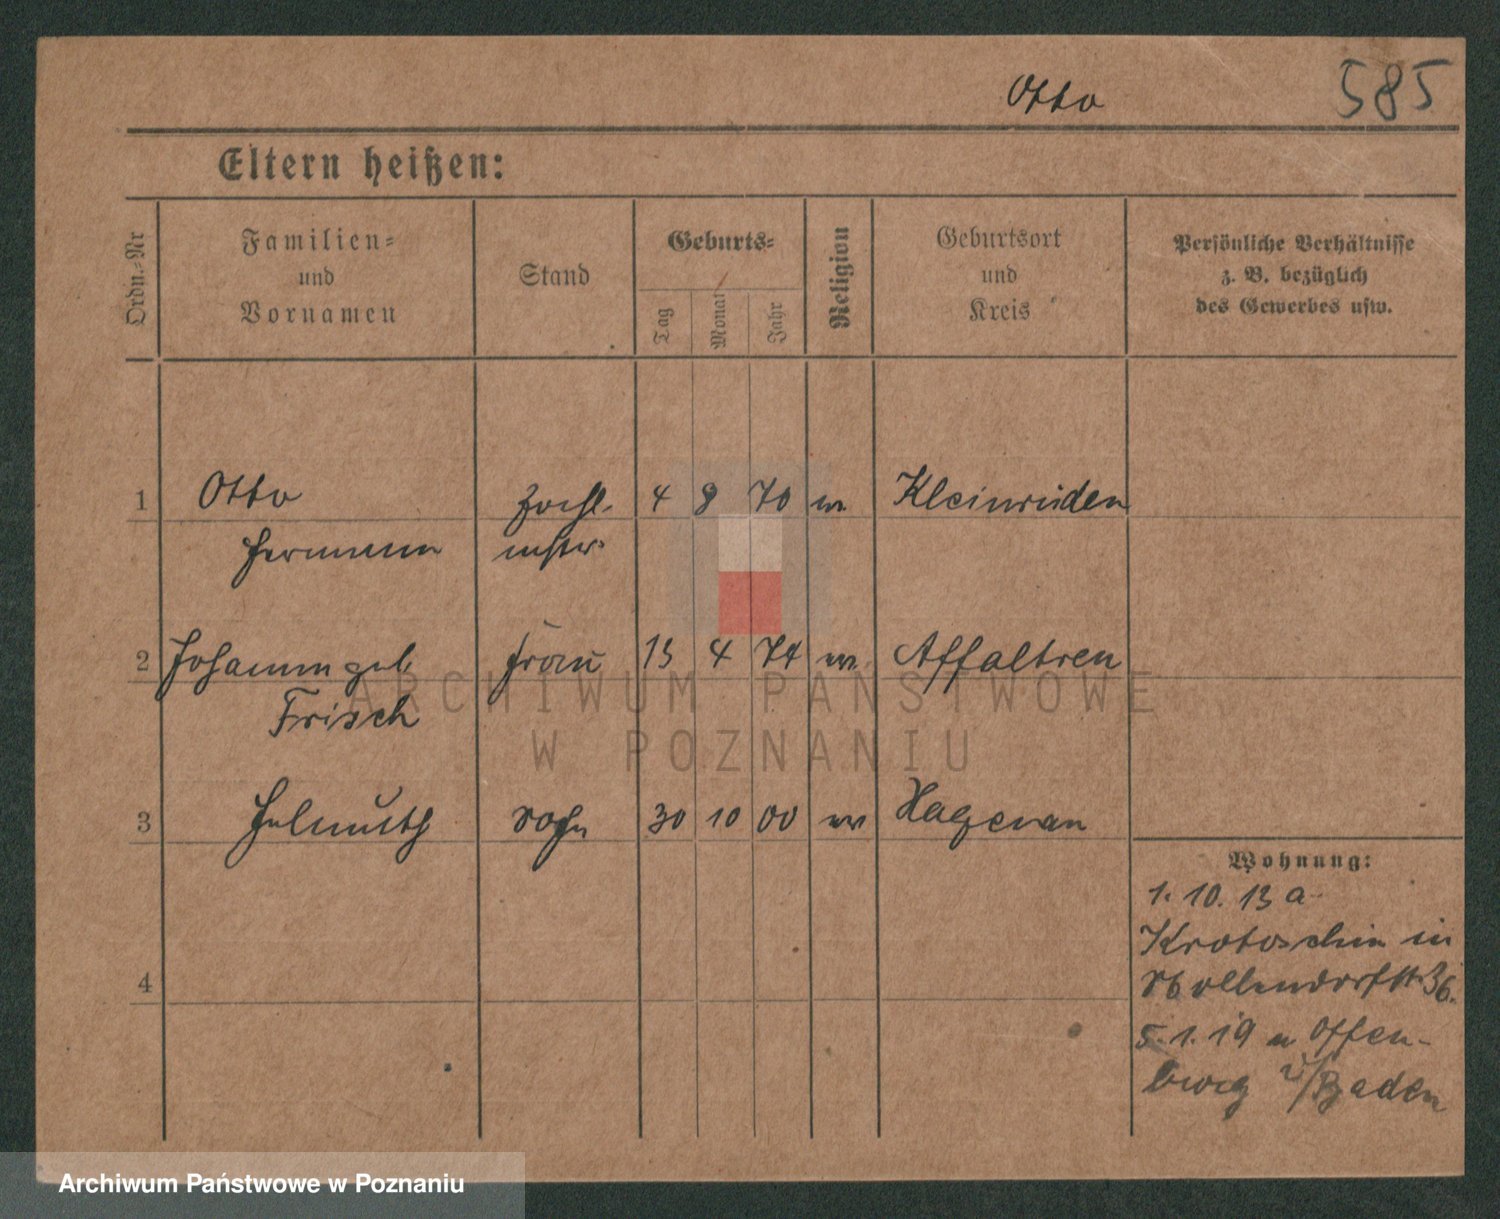 Otto 585
Eltern heißen:
Ordn.-Nr
Familien-
und
Vornamen
Stand
Geburts-
Tag Monat Jahr
Religion
Geburtsort
und
Kreis
Persönliche Verhältnisse
z. B. bezüglich
des Gewerbes usw.
1 Otto Zahl- 4 8 70 ev Kleinrüden
Hermann mstr.
2 Johanna geb. Frau 13 4 74 ev. Affaltren
Frisch
3 Helmuth Sohn 30 10 00 ev Hagenau
Wohnung:
1. 10. 13 a
Krotoschin in
Nollendorfstr. 36.
4
5. 1. 19 n Offen-
burg i/Baden
ARCHIWUM PAŃSTWOWE
W POZNANIU
Archiwum Państwowe w Poznaniu